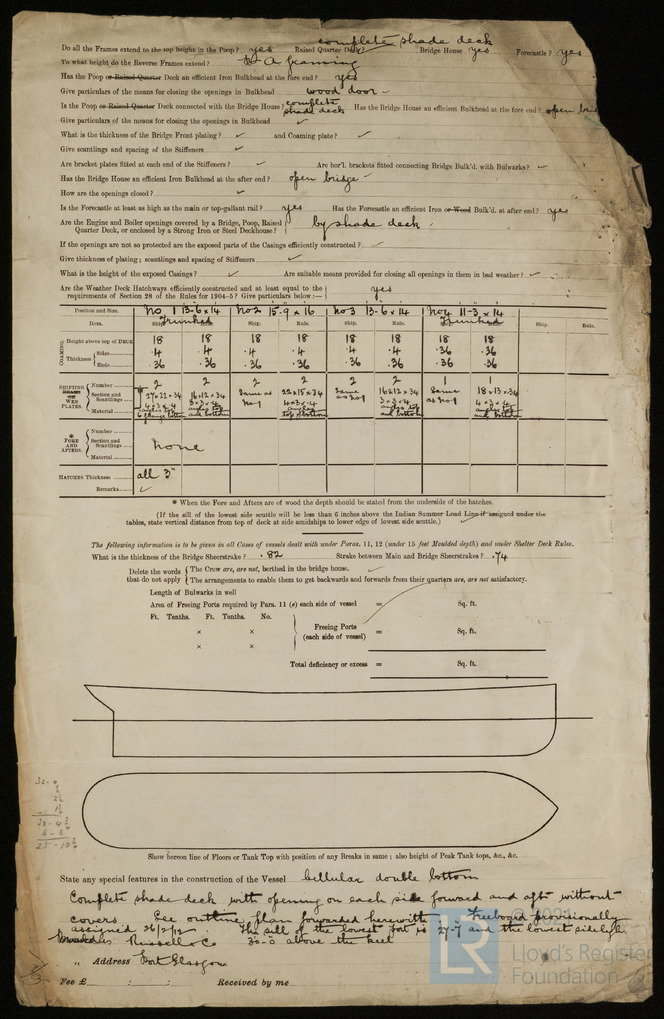 complete shade deck
Do all the Frames extend to the top height in the Poop? yes Raised Quarter Deck? Bridge House yes Forecastle? yes
To what height do the Reverse Frames extend? framing
Has the Poop or Raised Quarter Deck an efficient Iron Bulkhead at the fore end? yes
Give particulars of the means for closing the openings in Bulkhead wood door -
Is the Poop or Raised Quarter Deck connected with the Bridge House? complete shade deck Has the Bridge House an efficient Bulkhead at the fore end? open
Give particulars of the means for closing the openings in Bulkhead ✓
What is the thickness of the Bridge Front plating? ✓ and Coaming plate? ✓
Give scantlings and spacing of the Stiffeners ✓
Are bracket plates fitted at each end of the Stiffeners? ✓ Are hor'l. brackets fitted connecting Bridge Bulk'd. with Bulwarks? ✓
Has the Bridge House an efficient Iron Bulkhead at the after end? open bridge -
How are the openings closed? ✓
Is the Forecastle at least as high as the main or top-gallant rail? yes Has the Forecastle an efficient Iron or Wood Bulk'd. at after end? yes
Are the Engine and Boiler openings covered by a Bridge, Poop, Raised
Quarter Deck, or enclosed by a Strong Iron or Steel Deckhouse? by shade deck.
If the openings are not so protected are the exposed parts of the Casings efficiently constructed? ✓
Give thickness of plating; scantlings and spacing of Stiffeners ✓
What is the height of the exposed Casings? ✓ Are suitable means provided for closing all openings in them in bad weather? ✓
Are the Weather Deck Hatchways efficiently constructed and at least equal to the
requirements of Section 28 of the Rules for 1904-5? Give particulars below:— yes
Position and Size. No 1 13-6 x 14 No 2 15.9 x 16 No 3 13-6 x 14 No 4 11-3 x 14
Trunked Trunked
Item. Ship. Ship. Rule. Ship. Rule. Ship. Rule.
COAMING Height above top of DECK 18 18 18 18 18 18 18 18
Thickness Sides .4 .4 .4 .4 .4 .4 .36 .36
Ends .36 .36 .36 .36 .36 .36 .36 .36
SHIFTING WEB PLATES Number 2 2 2 2 2 2 1 1
Section and Scantlings 27 x 22 x 34 16 x 12 x 34 Same as No 1 22 x 15 x 34 Same as No 1 16 x 12 x 34 Same as No 1 18 x 13 x 34
4 x 3 x .4 3 x 3 x .4 4 x 3 x .4 3 x 3 x .4 4 x 3 x .4
Material angles top angles top and bottom angles top & bottom angles top and bottom angles top and bottom
* FORE AND AFTERS. Number
Section and Scantlings None
Material
HATCHES Thickness all 3"
Remarks ✓
* When the Fore and Afters are of wood the depth should be stated from the underside of the hatches.
(If the sill of the lowest side scuttle will be less than 6 inches above the Indian Summer Load Line if assigned under the
tables, state vertical distance from top of deck at side amidships to lower edge of lowest side scuttle.)
The following information is to be given in all Cases of vessels dealt with under Paras. 11, 12 (under 15 feet Moulded depth) and under Shelter Deck Rules.
What is the thickness of the Bridge Sheerstrake? .82 Strake between Main and Bridge Sheerstrakes? .74
Delete the words The Crew are, are not, berthed in the bridge house.
that do not apply The arrangements to enable them to get backwards and forwards from their quarters are, are not satisfactory.
Length of Bulwarks in well
Area of Freeing Ports required by Para. 11 (e) each side of vessel = Sq. ft.
Ft. Tenths. Ft. Tenths. No.
× × Freeing Ports
(each side of vessel) = Sq. ft.
× ×
Total deficiency or excess = Sq. ft.
Show hereon line of Floors or Tank Top with position of any Breaks in same; also height of Peak Tank tops, &c., &c.
State any special features in the construction of the Vessel Cellular double bottom
Complete shade deck with opening on each side forward and aft without
covers See outline plan forwarded herewith Freeboard provisionally
assigned The sill of the lowest port is 27-7 and the lowest sidelight
Russell & Co 30-0 above the keel
" Address Port Glasgow
Fee £ : : Received by me
LR
Lloyd's Register
Foundation